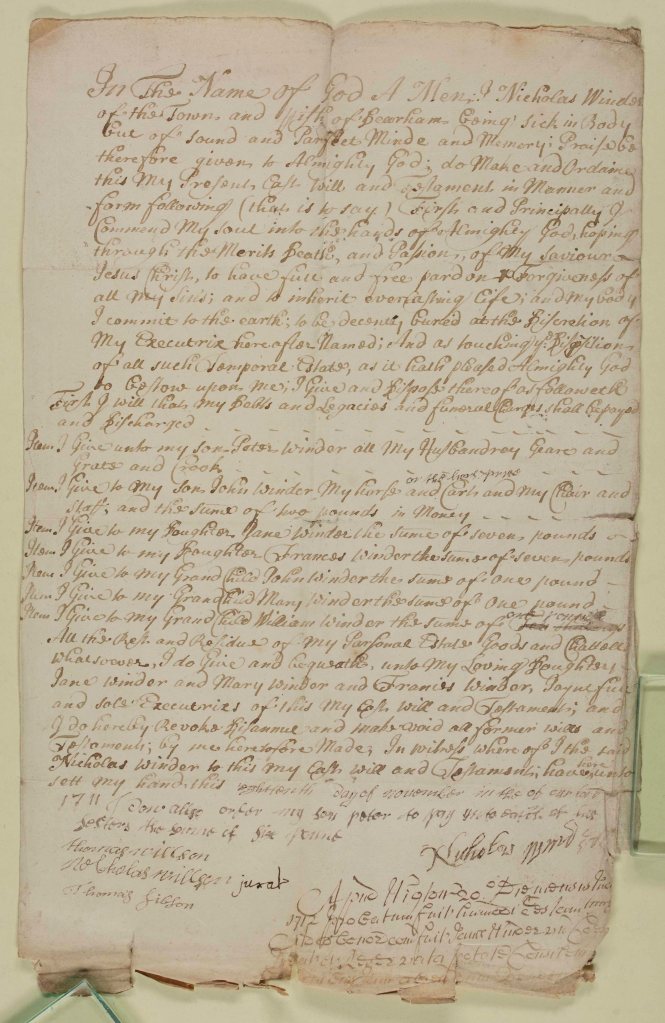 In The Name of God A Men; I Nicholas Winder
of the Town and pish of Dearham being sick in Body
but of sound and Parfect Minde and Memory; Praise be
therefore given to Almighty God; do Make and Ordaine
this My Present Last Will and Testament in Manner and
form following (that is to say) First and Principally I
Commend My soul into the hands of Almighty God, hoping
through the Merits Death, and Passion, of My Saviour
Jesus Christ, to have full and free pardon & Forgiveness of
all My Sins; and to inherit everlasting Life; and My body
I commit to the earth; to be decently buried at the Discretion of
My Executrix here after Named; And as touching ye
of all such Temporal Estate, as it hath pleased Almighty God
to bestow upon me; I Give and Dispose thereof as followeth
First I will that my Debts and Legacies and funeral Charges shall be payed
and Discharged
Item I Give unto my son Peter Winder all My Husbandrey Geare and
Grate and Crook
or the horse prise
Item I Give to My son John Winder My horse and Cart and My Chair and
Staff, and the sume of two pounds in Money
Item I Give to my Doughter Jane Winder the sume of seven pounds
Item I Give to my Doughter Frances Winder the sume of seven pounds
Item I Give to my Grand Child John Winder the sume of one pound
Item I Give to my Grand Child Mary Winder the sume of One pound
Item I Give to my Grand Child William Winder the sume of
All the Rest and Residue of My Parsonal Estate Goods and Chattells
whatsoever, I do Give and bequeath, unto My Loving Doughters
Jane Winder and Mary Winder and Frances Winder, Joynt full
and sole Executrixes of this My Last Will and Testament; and
I do hereby Revoke Disannue and make void all former wills and
Testaments; by me heretofore Made; In witness where of I the said
Nicholas Winder to this my Last Will and Testament; have here unto
sett my hand this day of November in the of our lord
1711 I doe alise order my son peter to pay unto each of his
sesters the sume of
thomas willson
Nicholas willson jurat
Thomas
Nicholas
Apud
1712 probatum fuit